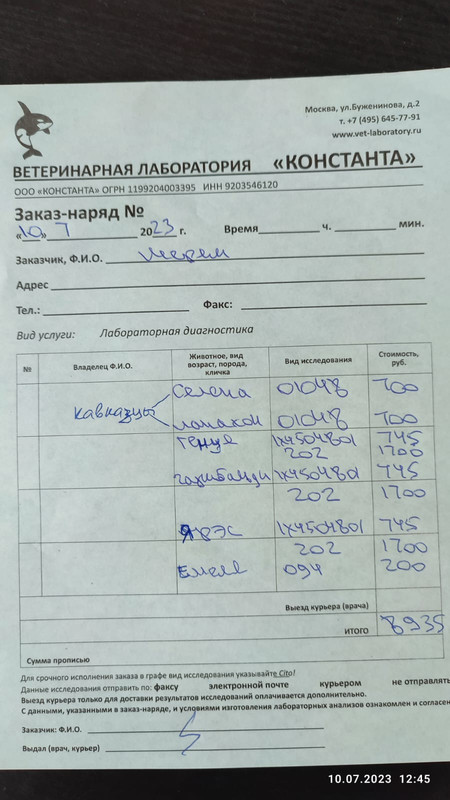 Москва, ул.Буженинова, д.2
т. +7 (495) 645-77-91
www.vet-laboratory.ru
ВЕТЕРИНАРНАЯ ЛАБОРАТОРИЯ «КОНСТАНТА»
ООО «КОНСТАНТА» ОГРН 1199204003395 ИНН 9203546120
Заказ-наряд №
«10» 7 2023 г. Время ч. мин.
Заказчик, Ф.И.О.
Адрес
Тел.: Факс:
Вид услуги: Лабораторная диагностика
№ Владелец Ф.И.О. Животное, вид возраст, порода, кличка Вид исследования Стоимость, руб.
Кавказцы Селена 01048 700
01048 700
1х4504801 745
202 1700
1х4504801 745
202 1700
Ярэс 1х4504801 745
202 1700
094 200
Выезд курьера (врача)
ИТОГО 8935
Сумма прописью
Для срочного исполнения заказа в графе вид исследования указывайте Cito!
Данные исследования отправить по: факсу электронной почте курьером не отправлять
Выезд курьера только для доставки результатов исследований оплачивается дополнительно.
С данными, указанными в заказ-наряде, и условиями изготовления лабораторных анализов ознакомлен и согласен
Заказчик: Ф.И.О.
Выдал (врач, курьер)
10.07.2023 12:45